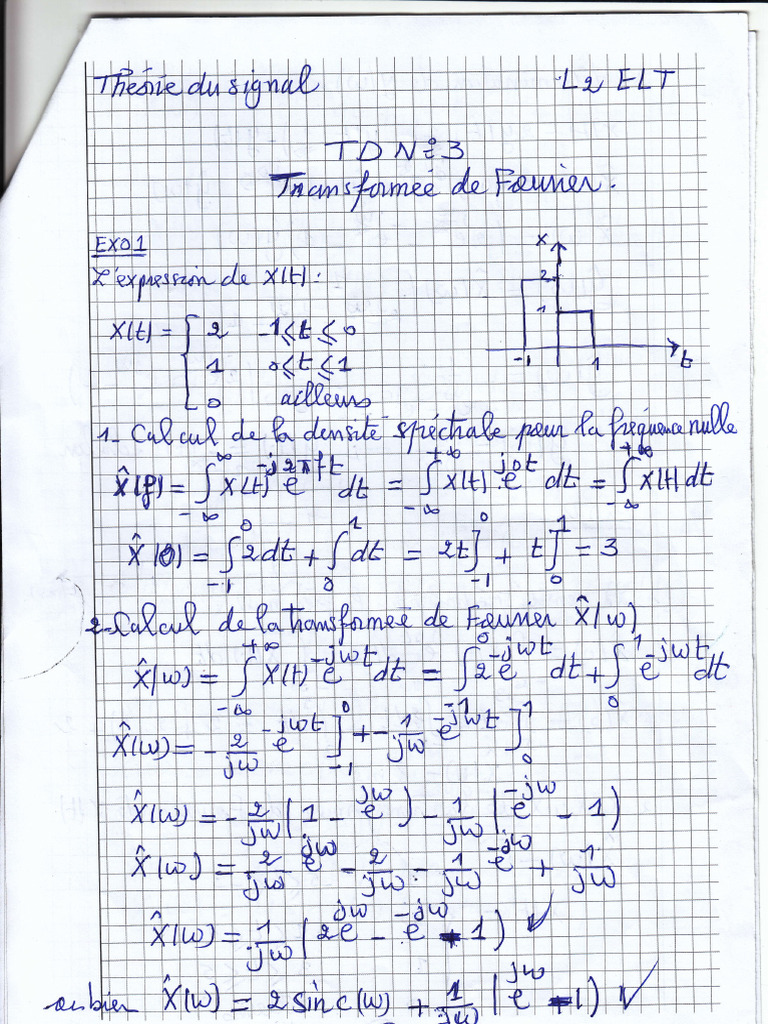 Théorie du signal L2 ELT
TD N°3
Transformeé de Fourier.
EXO1
L'expression de X(t):
X(t) = { 2 -1 ≤ t ≤ 0
1 0 ≤ t ≤ 1
0 ailleurs
x 2 1 -1 1 t
1- Calcul de la densité spéctrale pour la fréquence nulle
X̂(f) = ∫_{-∞}^{∞} X(t) e^{-j2πft} dt = ∫_{-∞}^{+∞} X(t) e^{j0t} dt = ∫_{-∞}^{+∞} X(t) dt
X̂(0) = ∫_{-1}^{0} 2dt + ∫_{0}^{1} dt = 2t]_{-1}^{0} + t]_{0}^{1} = 3
2- Calcul de la transformeé de Fourier X̂(w)
X̂(w) = ∫_{-∞}^{+∞} X(t) e^{-jwt} dt = ∫^{0} 2 e^{-jwt} dt + ∫_{0}^{1} e^{-jwt} dt
X̂(w) = - 2/jw e^{-jwt}]_{-1}^{0} + - 1/jw e^{-jwt}]_{0}^{1}
X̂(w) = - 2/jw (1 - e^{jw}) - 1/jw (e^{-jw} - 1)
X̂(w) = 2/jw e^{jw} - 2/jw - 1/jw e^{-jw} + 1/jw
X̂(w) = 1/jw (2e^{jw} - e^{-jw} - 1) ✓
ou bien X̂(w) = 2 sinc(w) + 1/jw (e^{jw} - 1) ✓